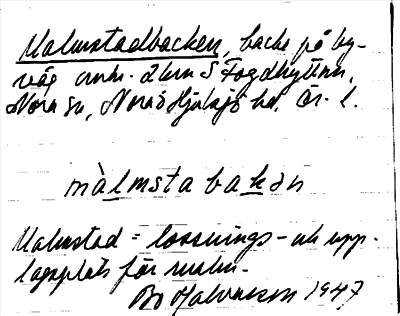 Malmstadbacken, backe på by-
väg omkr. 2 km S Fogdhyttan,
Nora sn, Nora o Hjulsjö hd, Ör. l.
màlmstabakən
Malmstad = lossnings- och upp-
lagsplats för malm.
Bo Halvarsson 1947